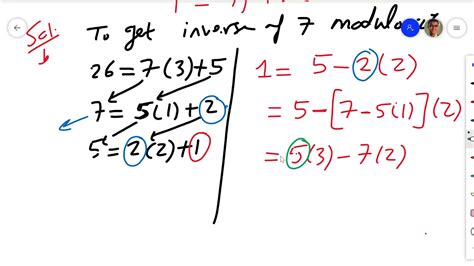 Sol:
b
To get inverse of 7 modulo 26
26 = 7(3)+5
7 = 5(1)+2
5 = 2(2)+1
1 = 5-2(2)
= 5-[7-5(1)](2)
= 5(3)-7(2)